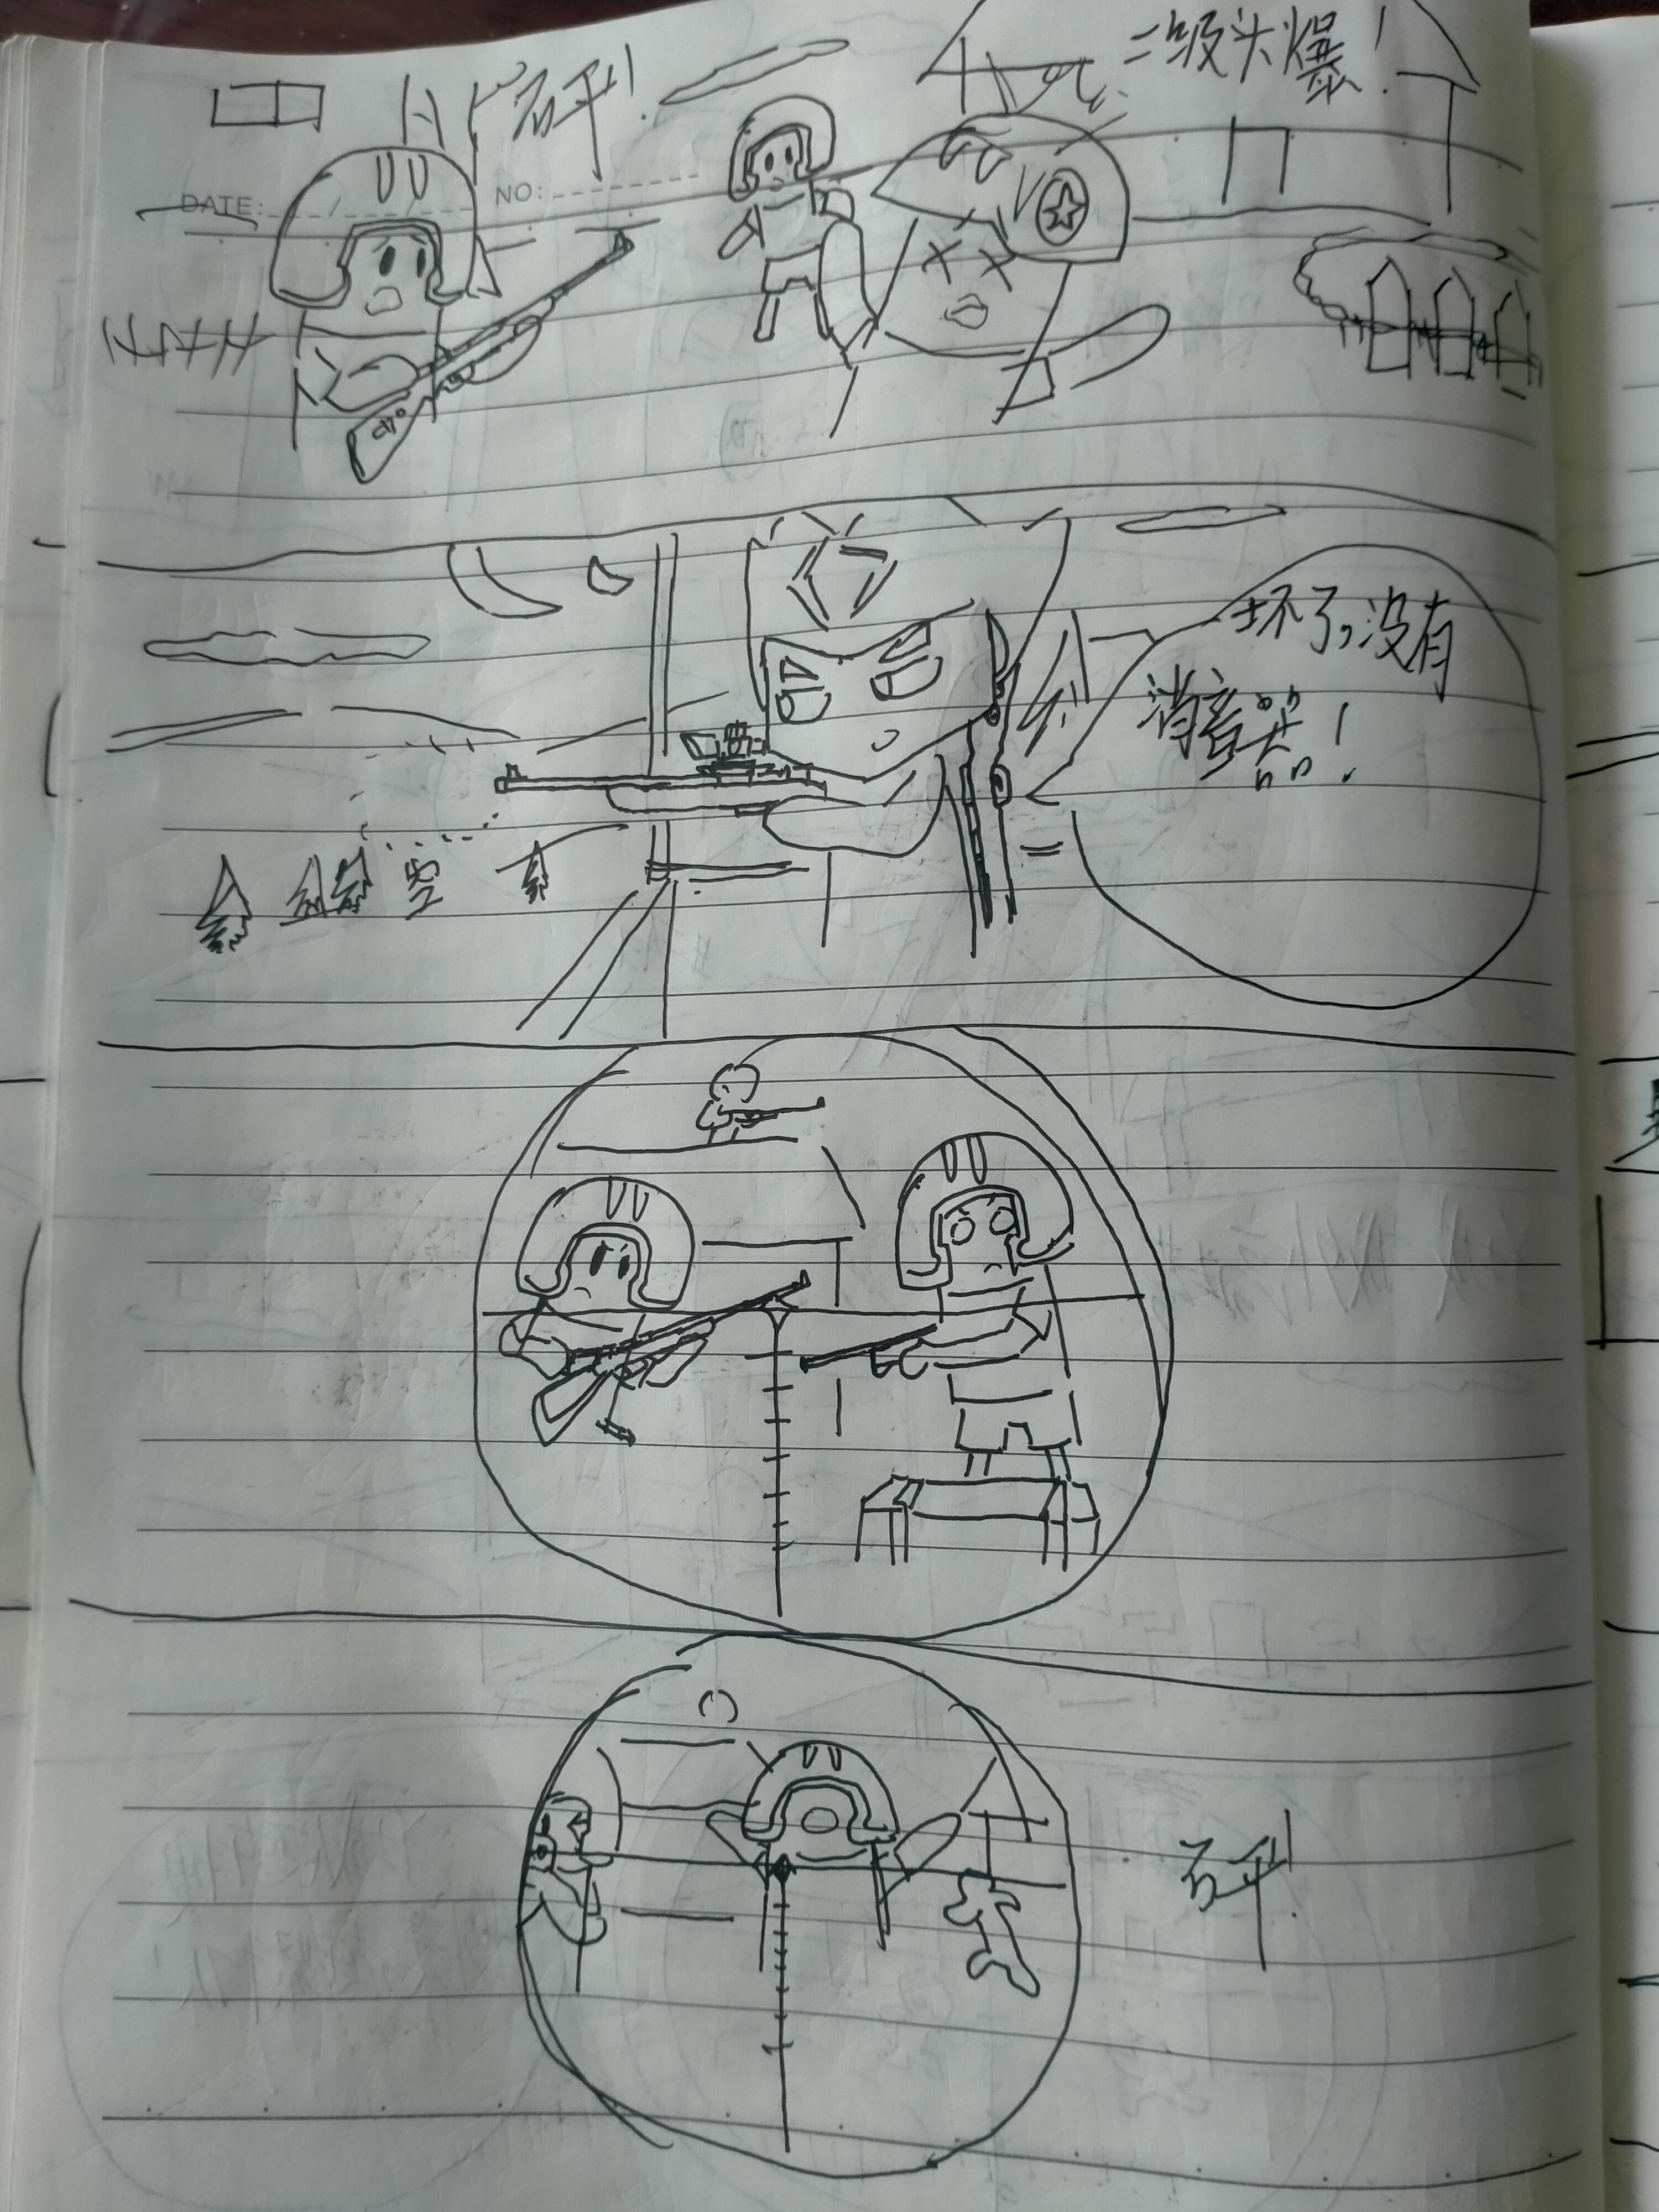 砰!
二级头爆!
DATE:
NO:
坏了,没有
消音器!
空
砰!